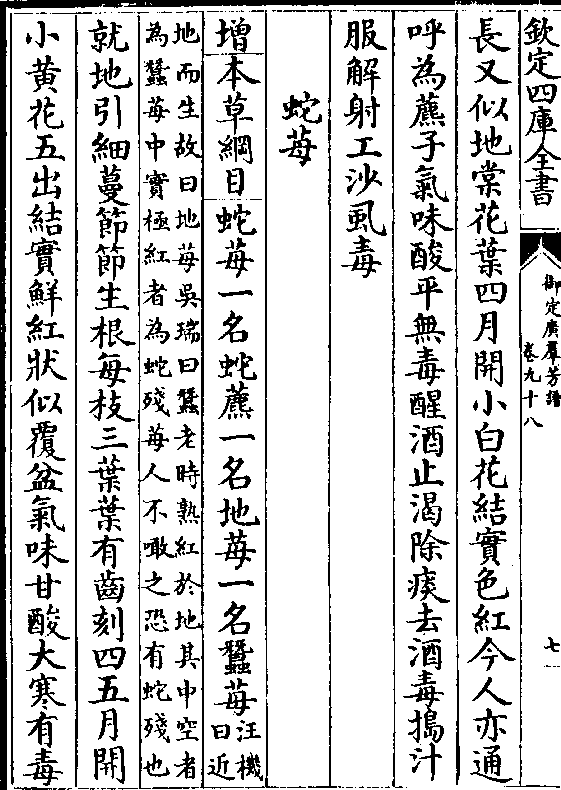 欽定四庫全書
御定廣羣芳譜
卷九十八
七
長又似地棠花葉四月開小白花結實色紅今人亦通
呼為藨子氣味酸平無毒醒酒止渴除痰去酒毒搗汁
服解射工沙虱毒
蛇莓
增本草綱目蛇莓一名蛇藨一名地莓一名蠶莓汪機
曰近
地而生故曰地莓吳瑞曰蠶老時熟紅於地其中空者
為蠶莓中實極紅者為蛇殘莓人不噉之恐有蛇殘也
就地引細蔓節節生根每枝三葉葉有齒刻四五月開
小黃花五出結實鮮紅狀似覆盆氣味甘酸大寒有毒